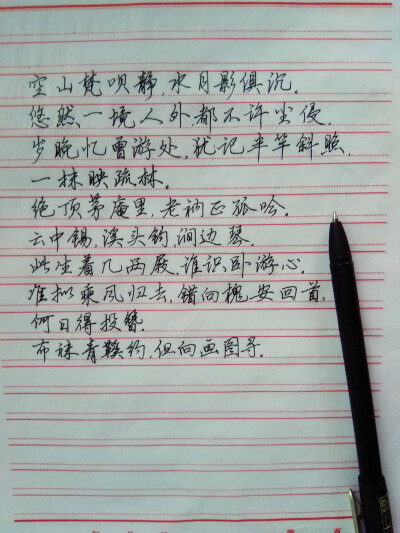 空山梵呗静，水月影俱沉．
悠然一境人外，都不许尘侵．
岁晚忆曾游处，犹记半竿斜照，
一抹映疏林．
绝顶茅庵里，老衲正孤吟．
云中锡，溪头钓，涧边琴．
此生着几两屐，谁识卧游心．
准拟乘风归去，错向槐安回首，
何日得投簪．
布袜青鞋约，但向画图寻．